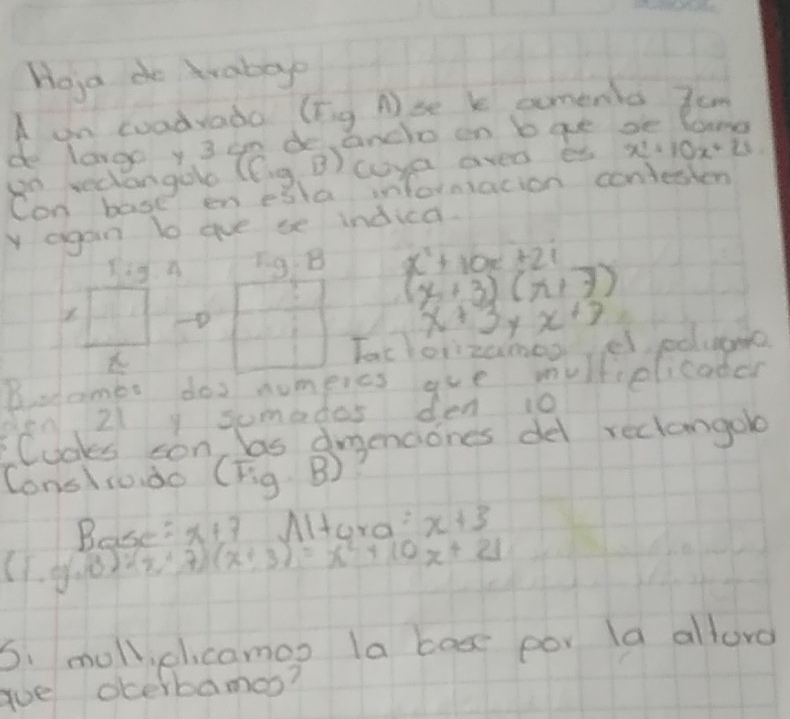 Hoja de trabajo
A un cuadrado (Fig A) se le aumenta 7cm
de largo y 3 cm de ancho en lo que se forma
un rectangulo (Fig B) cuya area es x²+10x+21.
Con base en esta informacion contesten
y agan lo que se indica.
Fig A Fig. B x²+10x+21
(x+3)(x+7)
x x+3 y x+7
x Factorizamos el
Buscamos dos numeros que multiplicados
den 21 y sumados den 10
Cuales son las dimenciones del rectangulo
Construido (Fig B)
Base: x+7 Altura: x+3
(Fig. B)=(x+7)(x+3)=x²+10x+21
Si multiplicamos la base por la altura
que oterbamos?